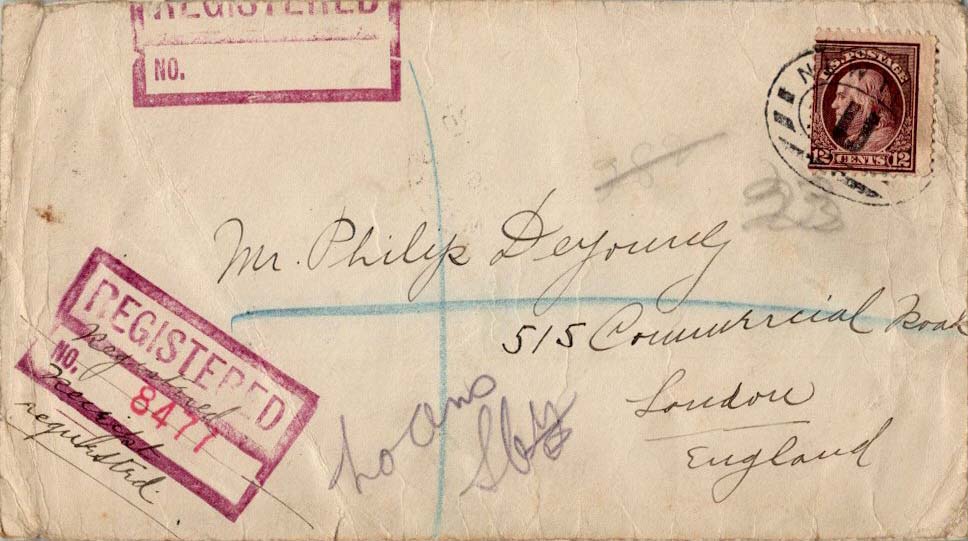 REGISTERED
NO.
U.S. POSTAGE
12 CENTS 12
23
Mr. Philip DeYoung
515 Commercial Road
London
England
REGISTERED
NO.
8477
Registered
Receipt
requested.